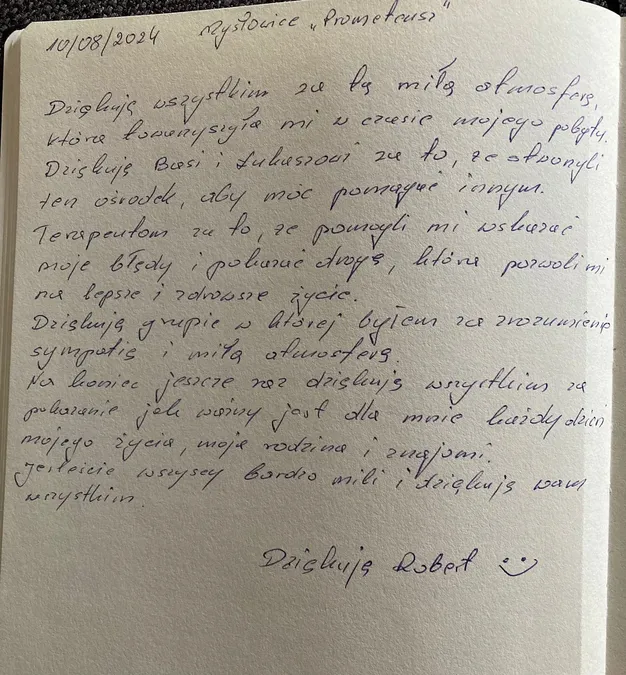 10/08/2024 Mysłowice „Prometeusz"
Dziękuję wszystkim za tą miłą atmosferę,
która towarzyszyła mi w czasie mojego pobytu.
Dziękuję Basi i Łukaszowi za to, że otworzyli
ten ośrodek, aby móc pomagać innym.
Terapeutom za to, że pomogli mi wskazać
moje błędy i pokazać drogę, która pozwoli mi
na lepsze i zdrowsze życie.
Dziękuję grupie w której byłem za zrozumienie
sympatię i miłą atmosferę.
Na koniec jeszcze raz dziękuję wszystkim za
pokazanie jak ważny jest dla mnie każdy dzień
mojego życia, moja rodzina i znajomi.
Jesteście wszyscy bardzo mili i dziękuję wam
wszystkim.
Dziękuję Robert